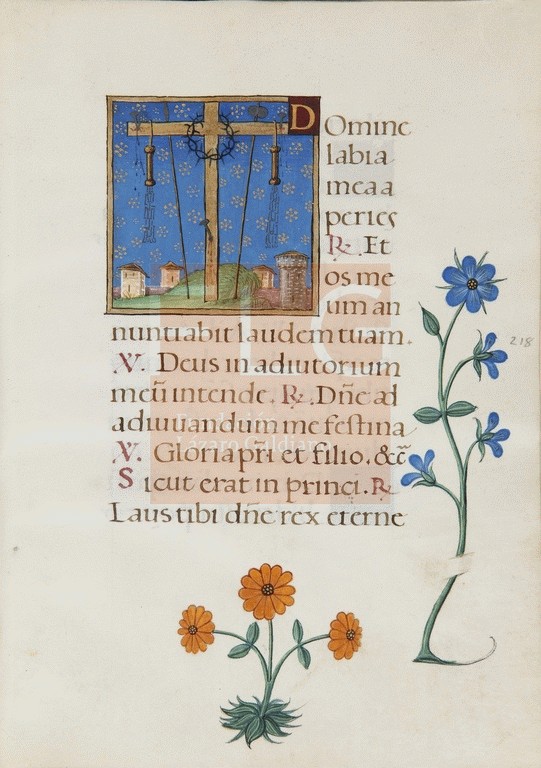 D Omine
labia
mea a
peries
℟. Et
os me
um an
nuntiabit laudem tuam.
℣. Deus in adiutorium
meū intende. ℟. Dñe ad
adiuuandum me festina
℣. Gloria pr̄i et filio. &c̄
Sicut erat in princi. ℟
Laus tibi dñe rex eterne
218
Fundación
Lázaro Galdiano